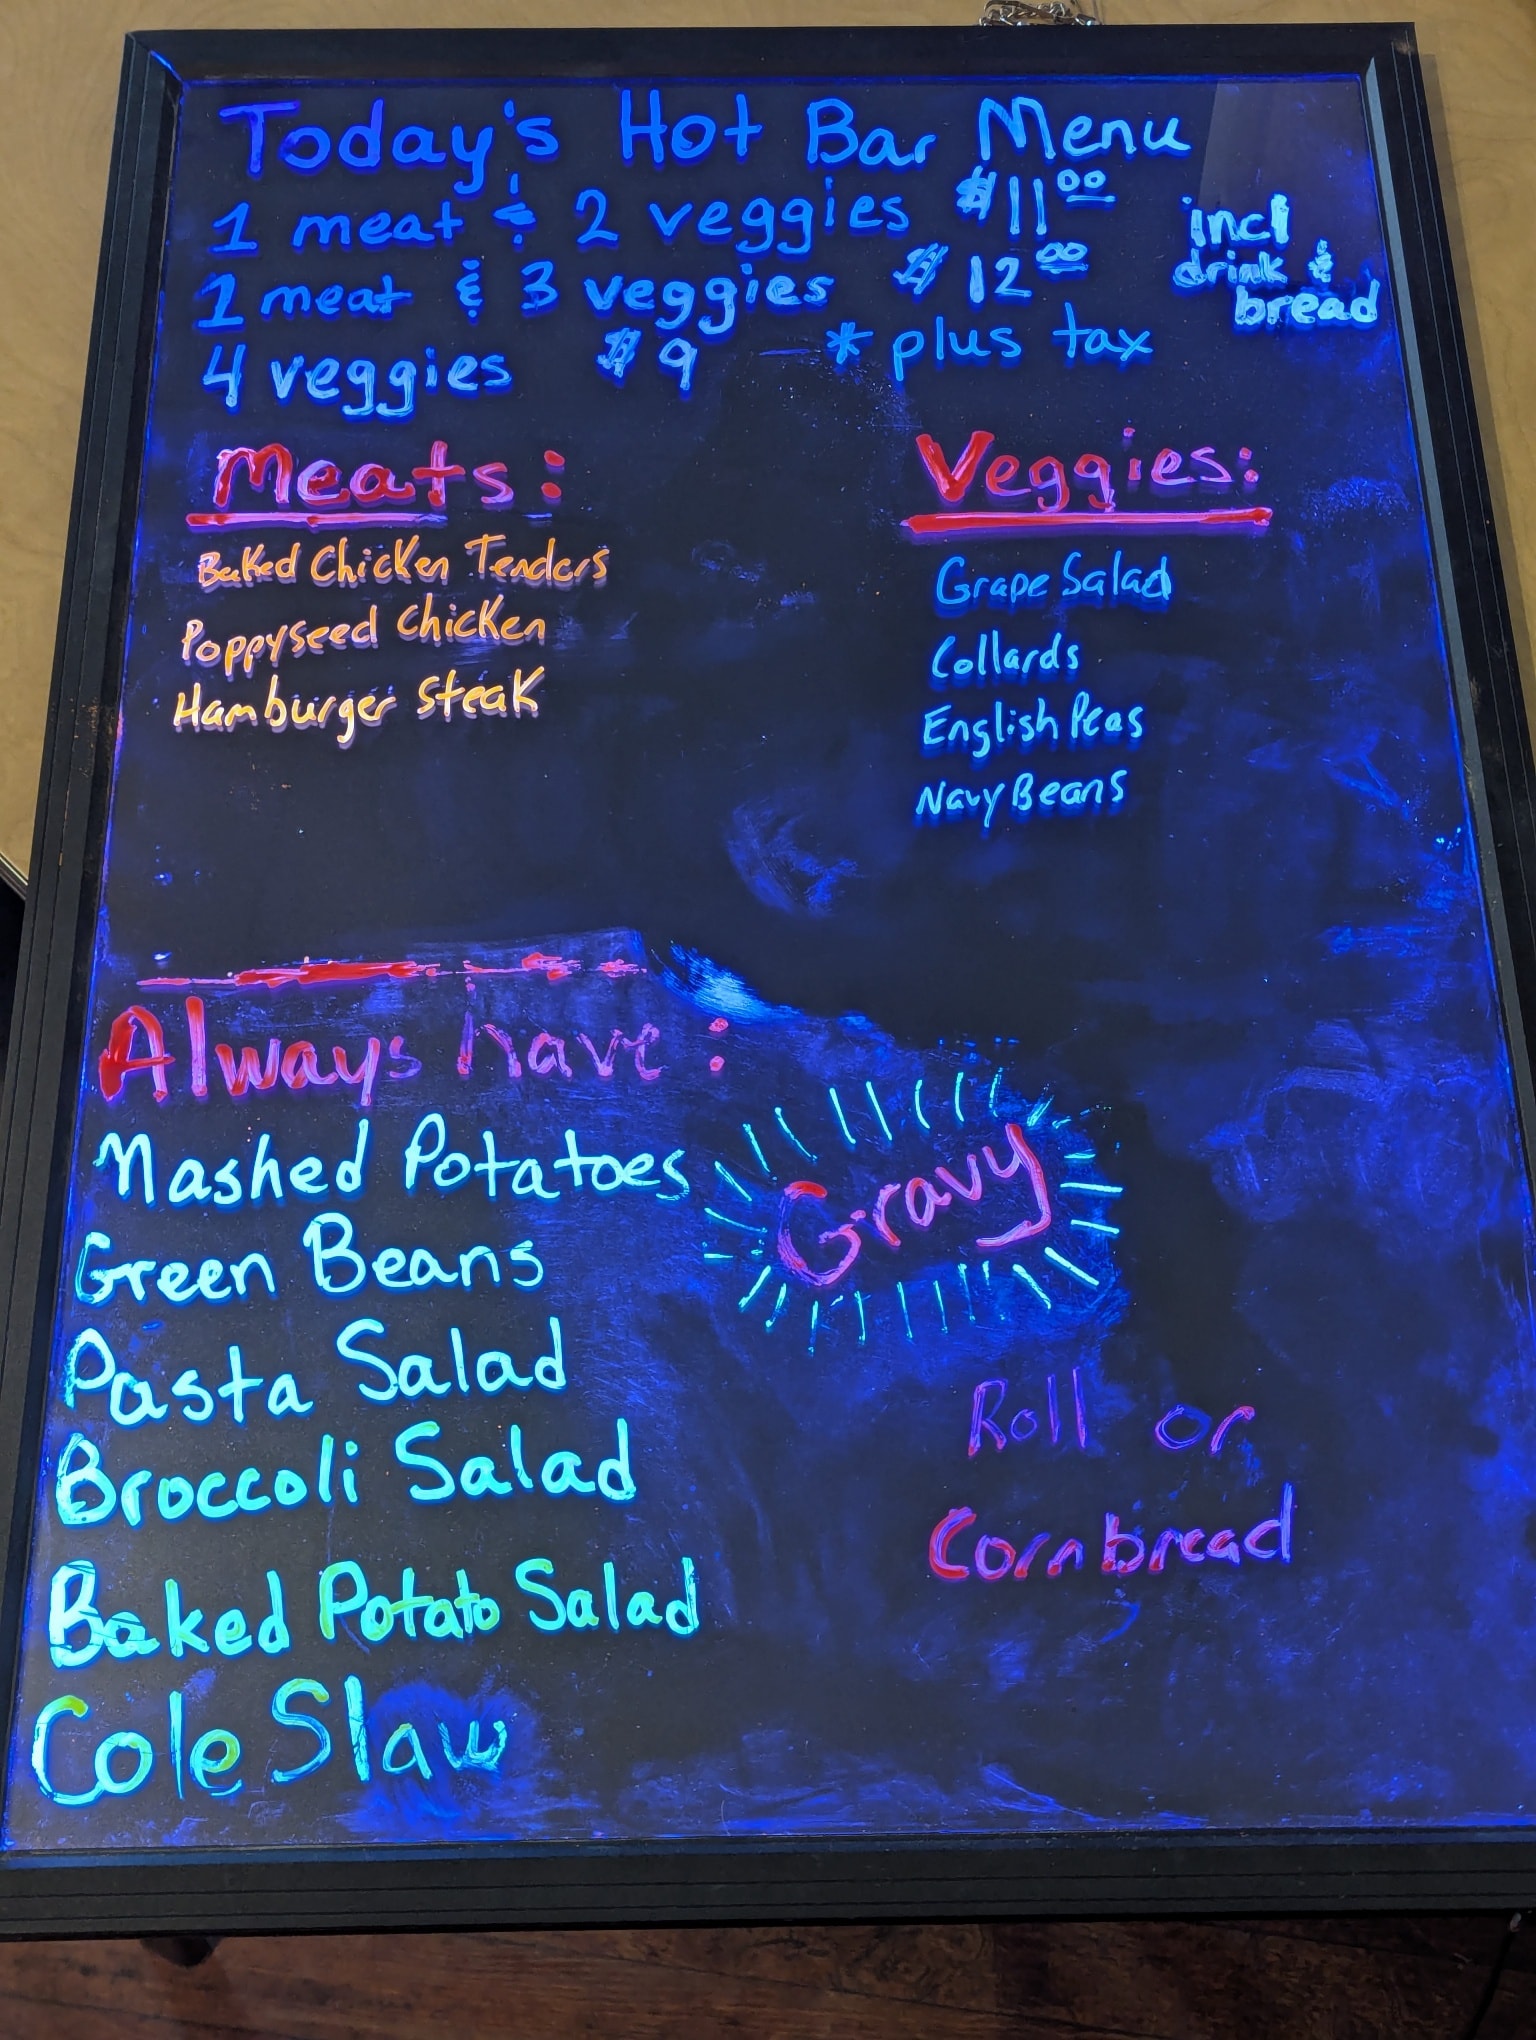 Today's Hot Bar Menu
1 meat & 2 veggies $11.00
1 meat & 3 veggies $12.00
4 veggies $9 *plus tax
incl
drink &
bread
Meats:
Baked Chicken Tenders
Poppyseed Chicken
Hamburger Steak
Veggies:
Grape Salad
Collards
English Peas
Navy Beans
Always have:
Mashed Potatoes
Green Beans
Pasta Salad
Broccoli Salad
Baked Potato Salad
Cole Slaw
Gravy
Roll or
Cornbread